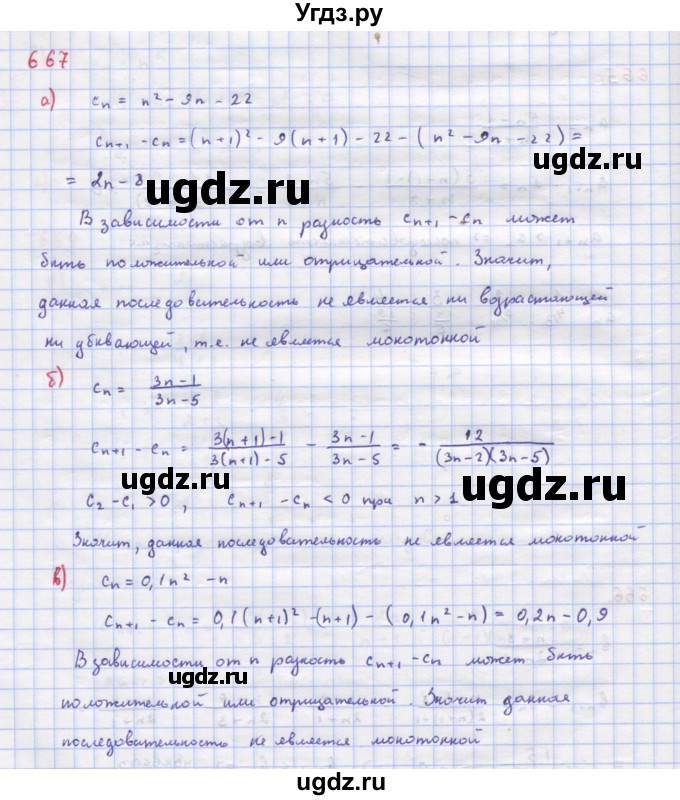 Угдз.ру
667
а) cn = n² - 9n - 22
cn+1 - cn = (n+1)² - 9(n+1) - 22 - (n² - 9n - 22) =
= 2n - 8
ugdz.ru
ugdz.ru
В зависимости от n разность cn+1 - cn может
быть положительной или отрицательной. Значит,
данная последовательность не является ни возрастающей
ни убывающей, т.е. не является монотонной
б) cn = (3n-1)/(3n-5)
cn+1 - cn = (3(n+1)-1)/(3(n+1)-5) - (3n-1)/(3n-5) = - 12/((3n-2)(3n-5))
ugdz.ru
ugdz.ru
c2 - c1 > 0, cn+1 - cn < 0 при n > 1
Значит, данная последовательность не является монотонной
в) cn = 0,1n² - n
cn+1 - cn = 0,1(n+1)² - (n+1) - (0,1n² - n) = 0,2n - 0,9
ugdz.ru
ugdz.ru
В зависимости от n разность cn+1 - cn может быть
положительной или отрицательной. Значит данная
последовательность не является монотонной
ugdz.ru